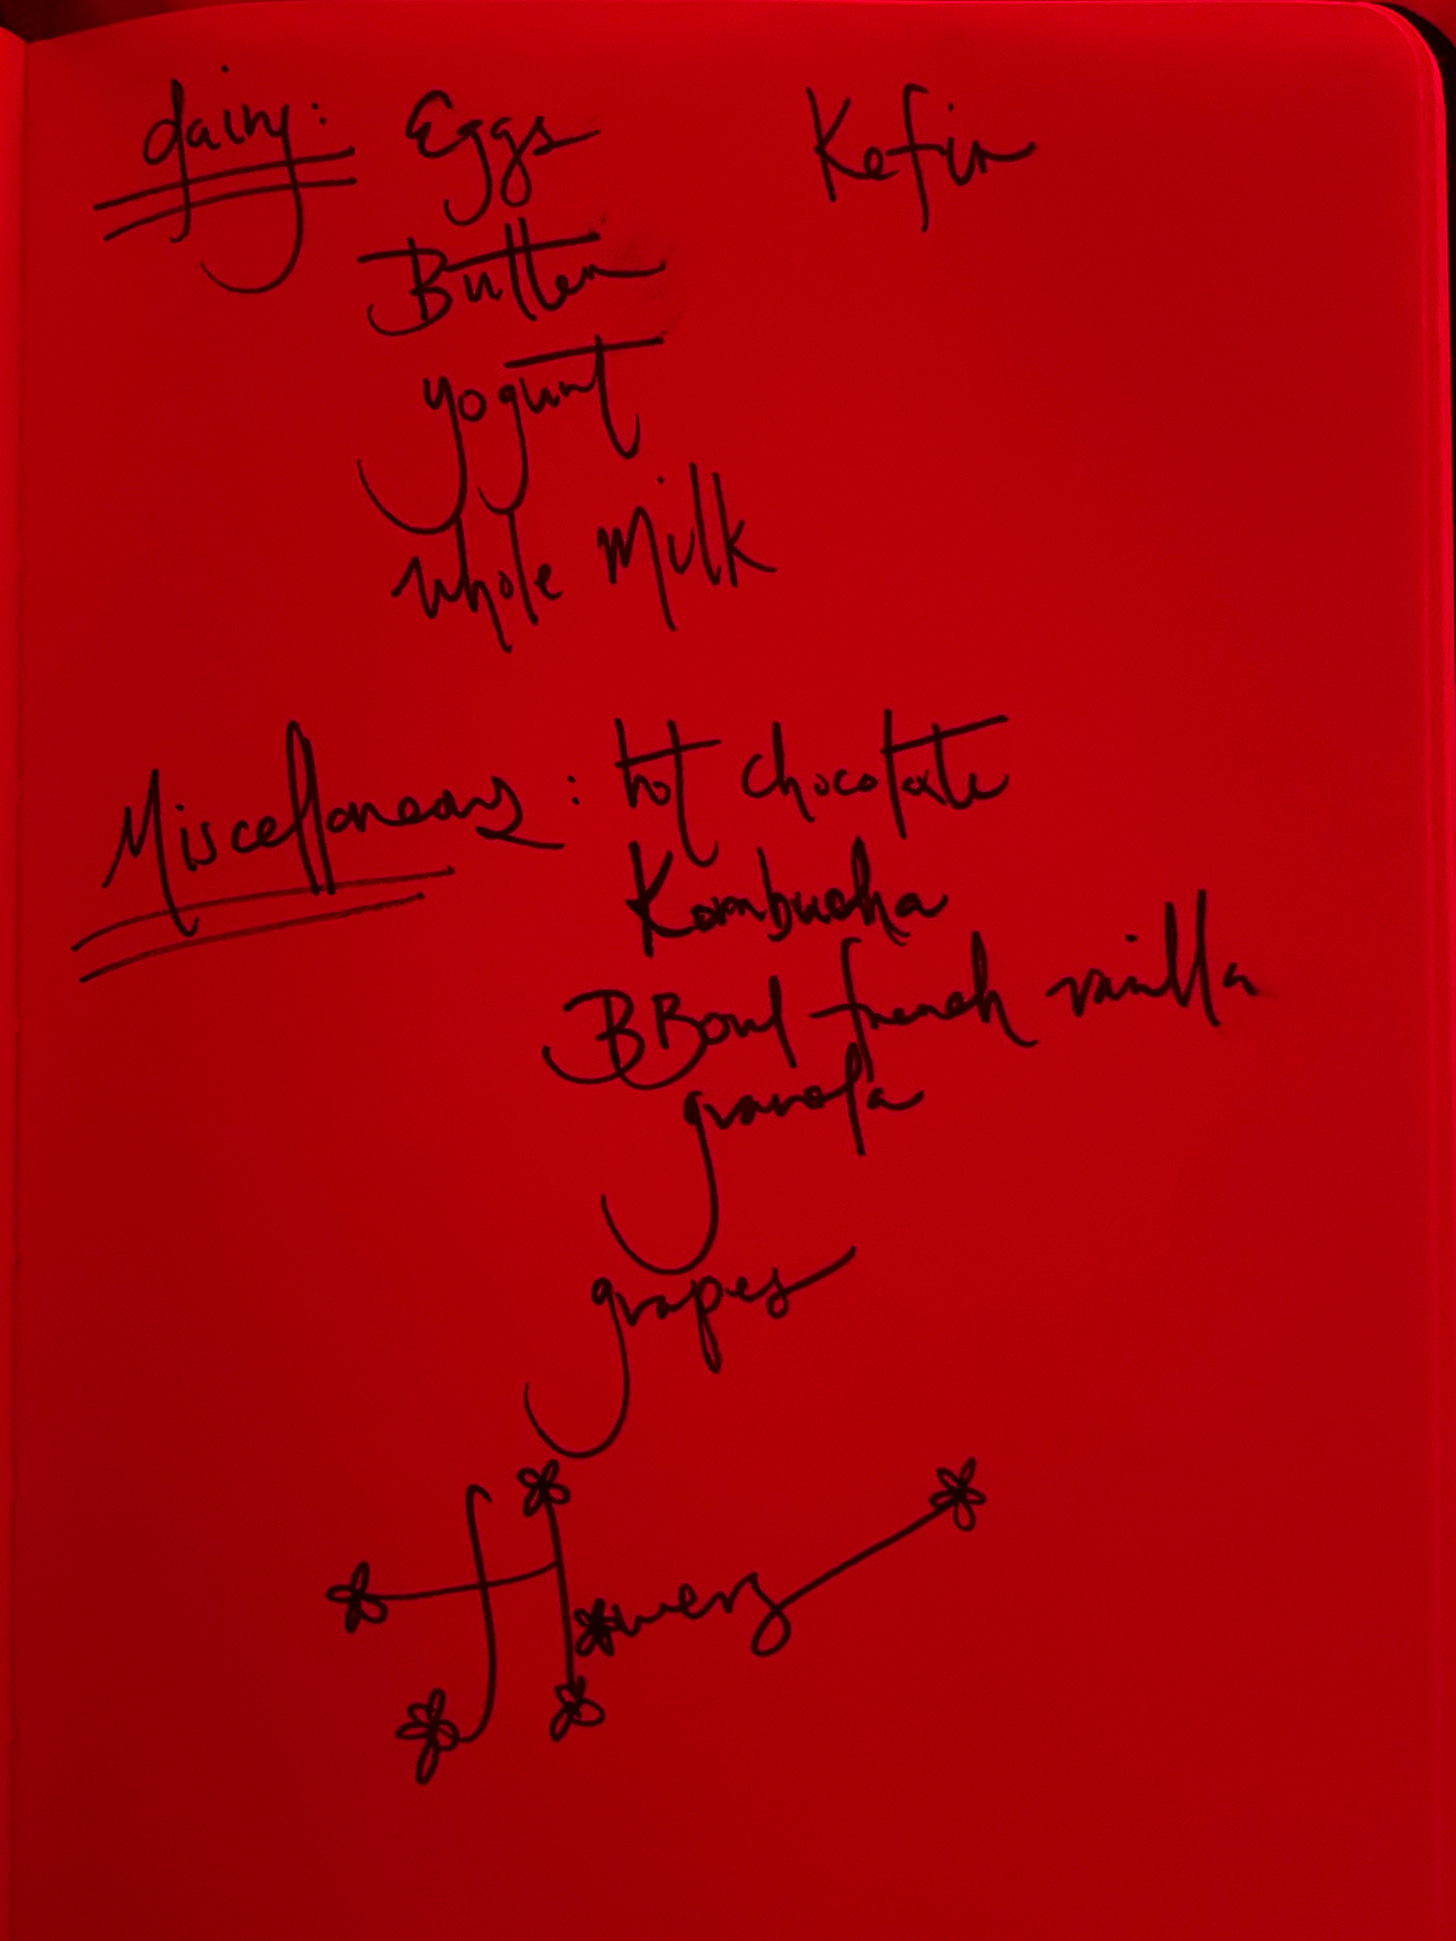 dairy: Eggs Kefir
Butter
yogurt
whole Milk
Miscellaneous: hot chocolate
Kombucha
BBowl french vanilla
granola
grapes
flowers